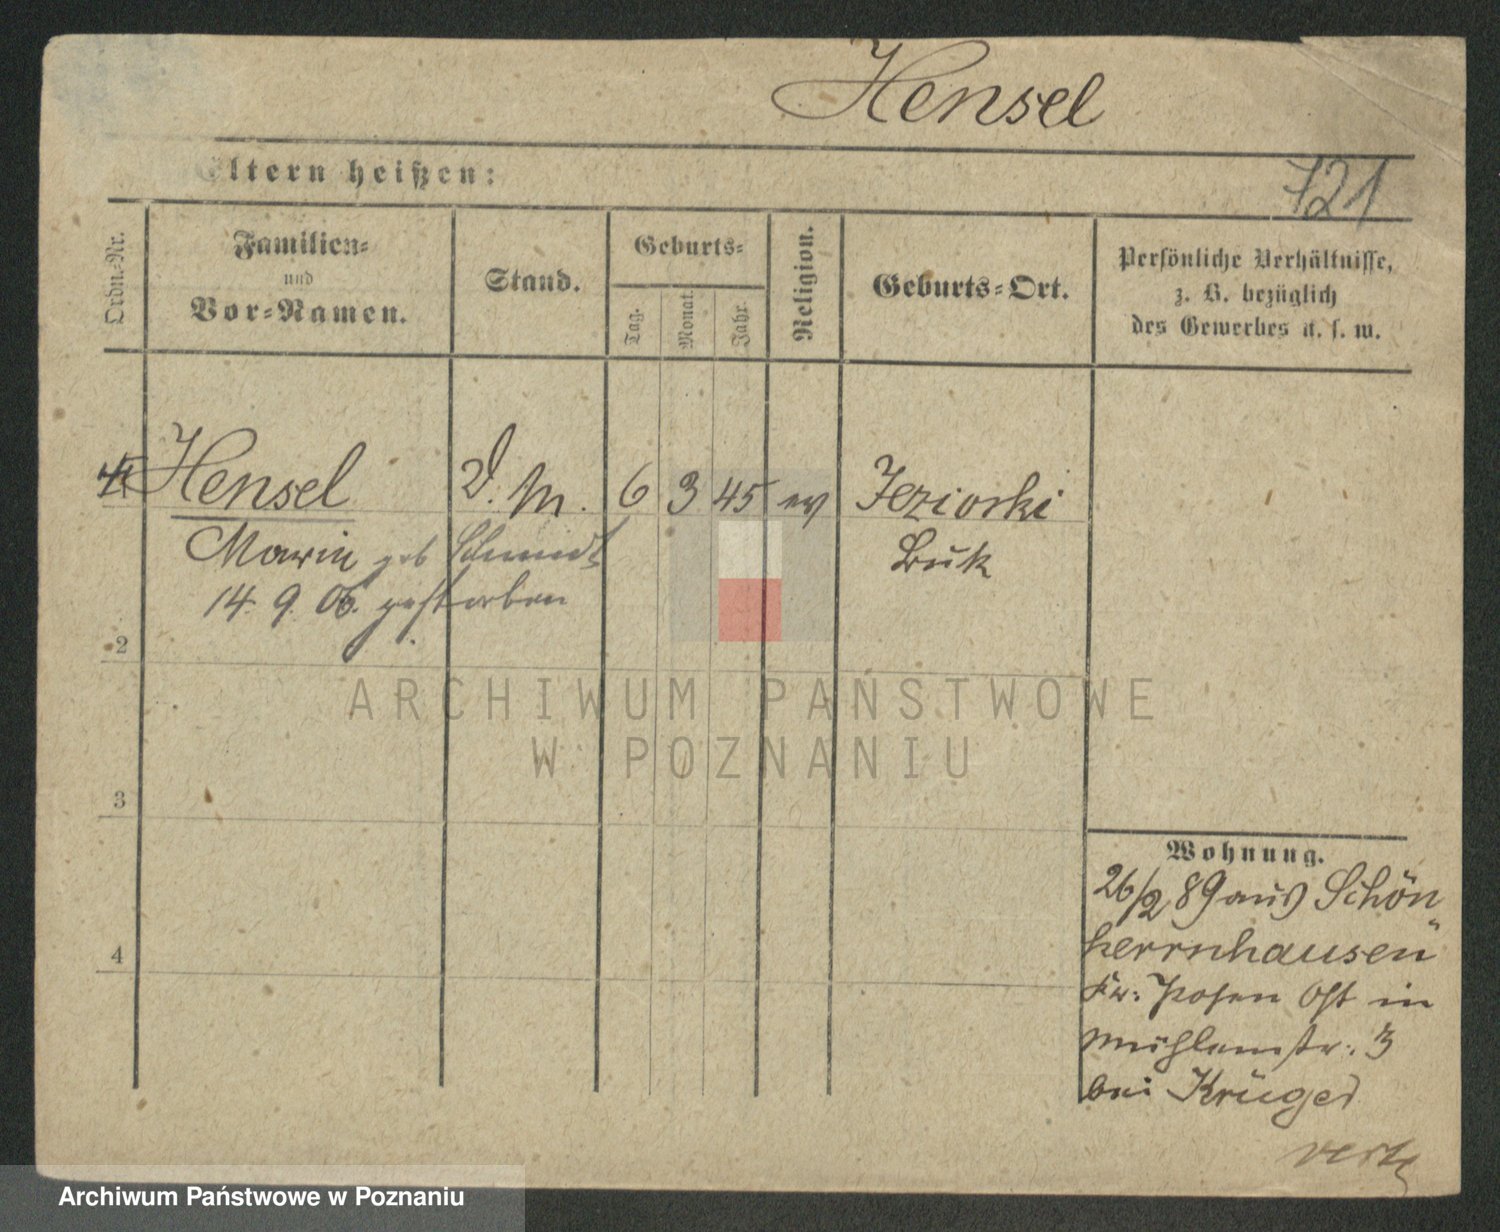 Hensel
Eltern heißen:
721
Ordn.-Nr.
Familien-
und
Vor-Namen.
Stand.
Geburts-
Tag.
Monat.
Jahr.
Religion.
Geburts-Ort.
Persönliche Verhältnisse,
z. B. bezüglich
des Gewerbes u. s. w.
Hensel D. M. 6 3 45 ev Jeziorki
Marie geb Schmidt Buk
14. 9. 06. gestorben
2
3
4
Wohnung.
26/2 89 aus Schön-
herrnhausen
Kr: Posen Ost in
Mühlenstr: 3
bei Krüger
ARCHIWUM PAŃSTWOWE
W POZNANIU
Archiwum Państwowe w Poznaniu